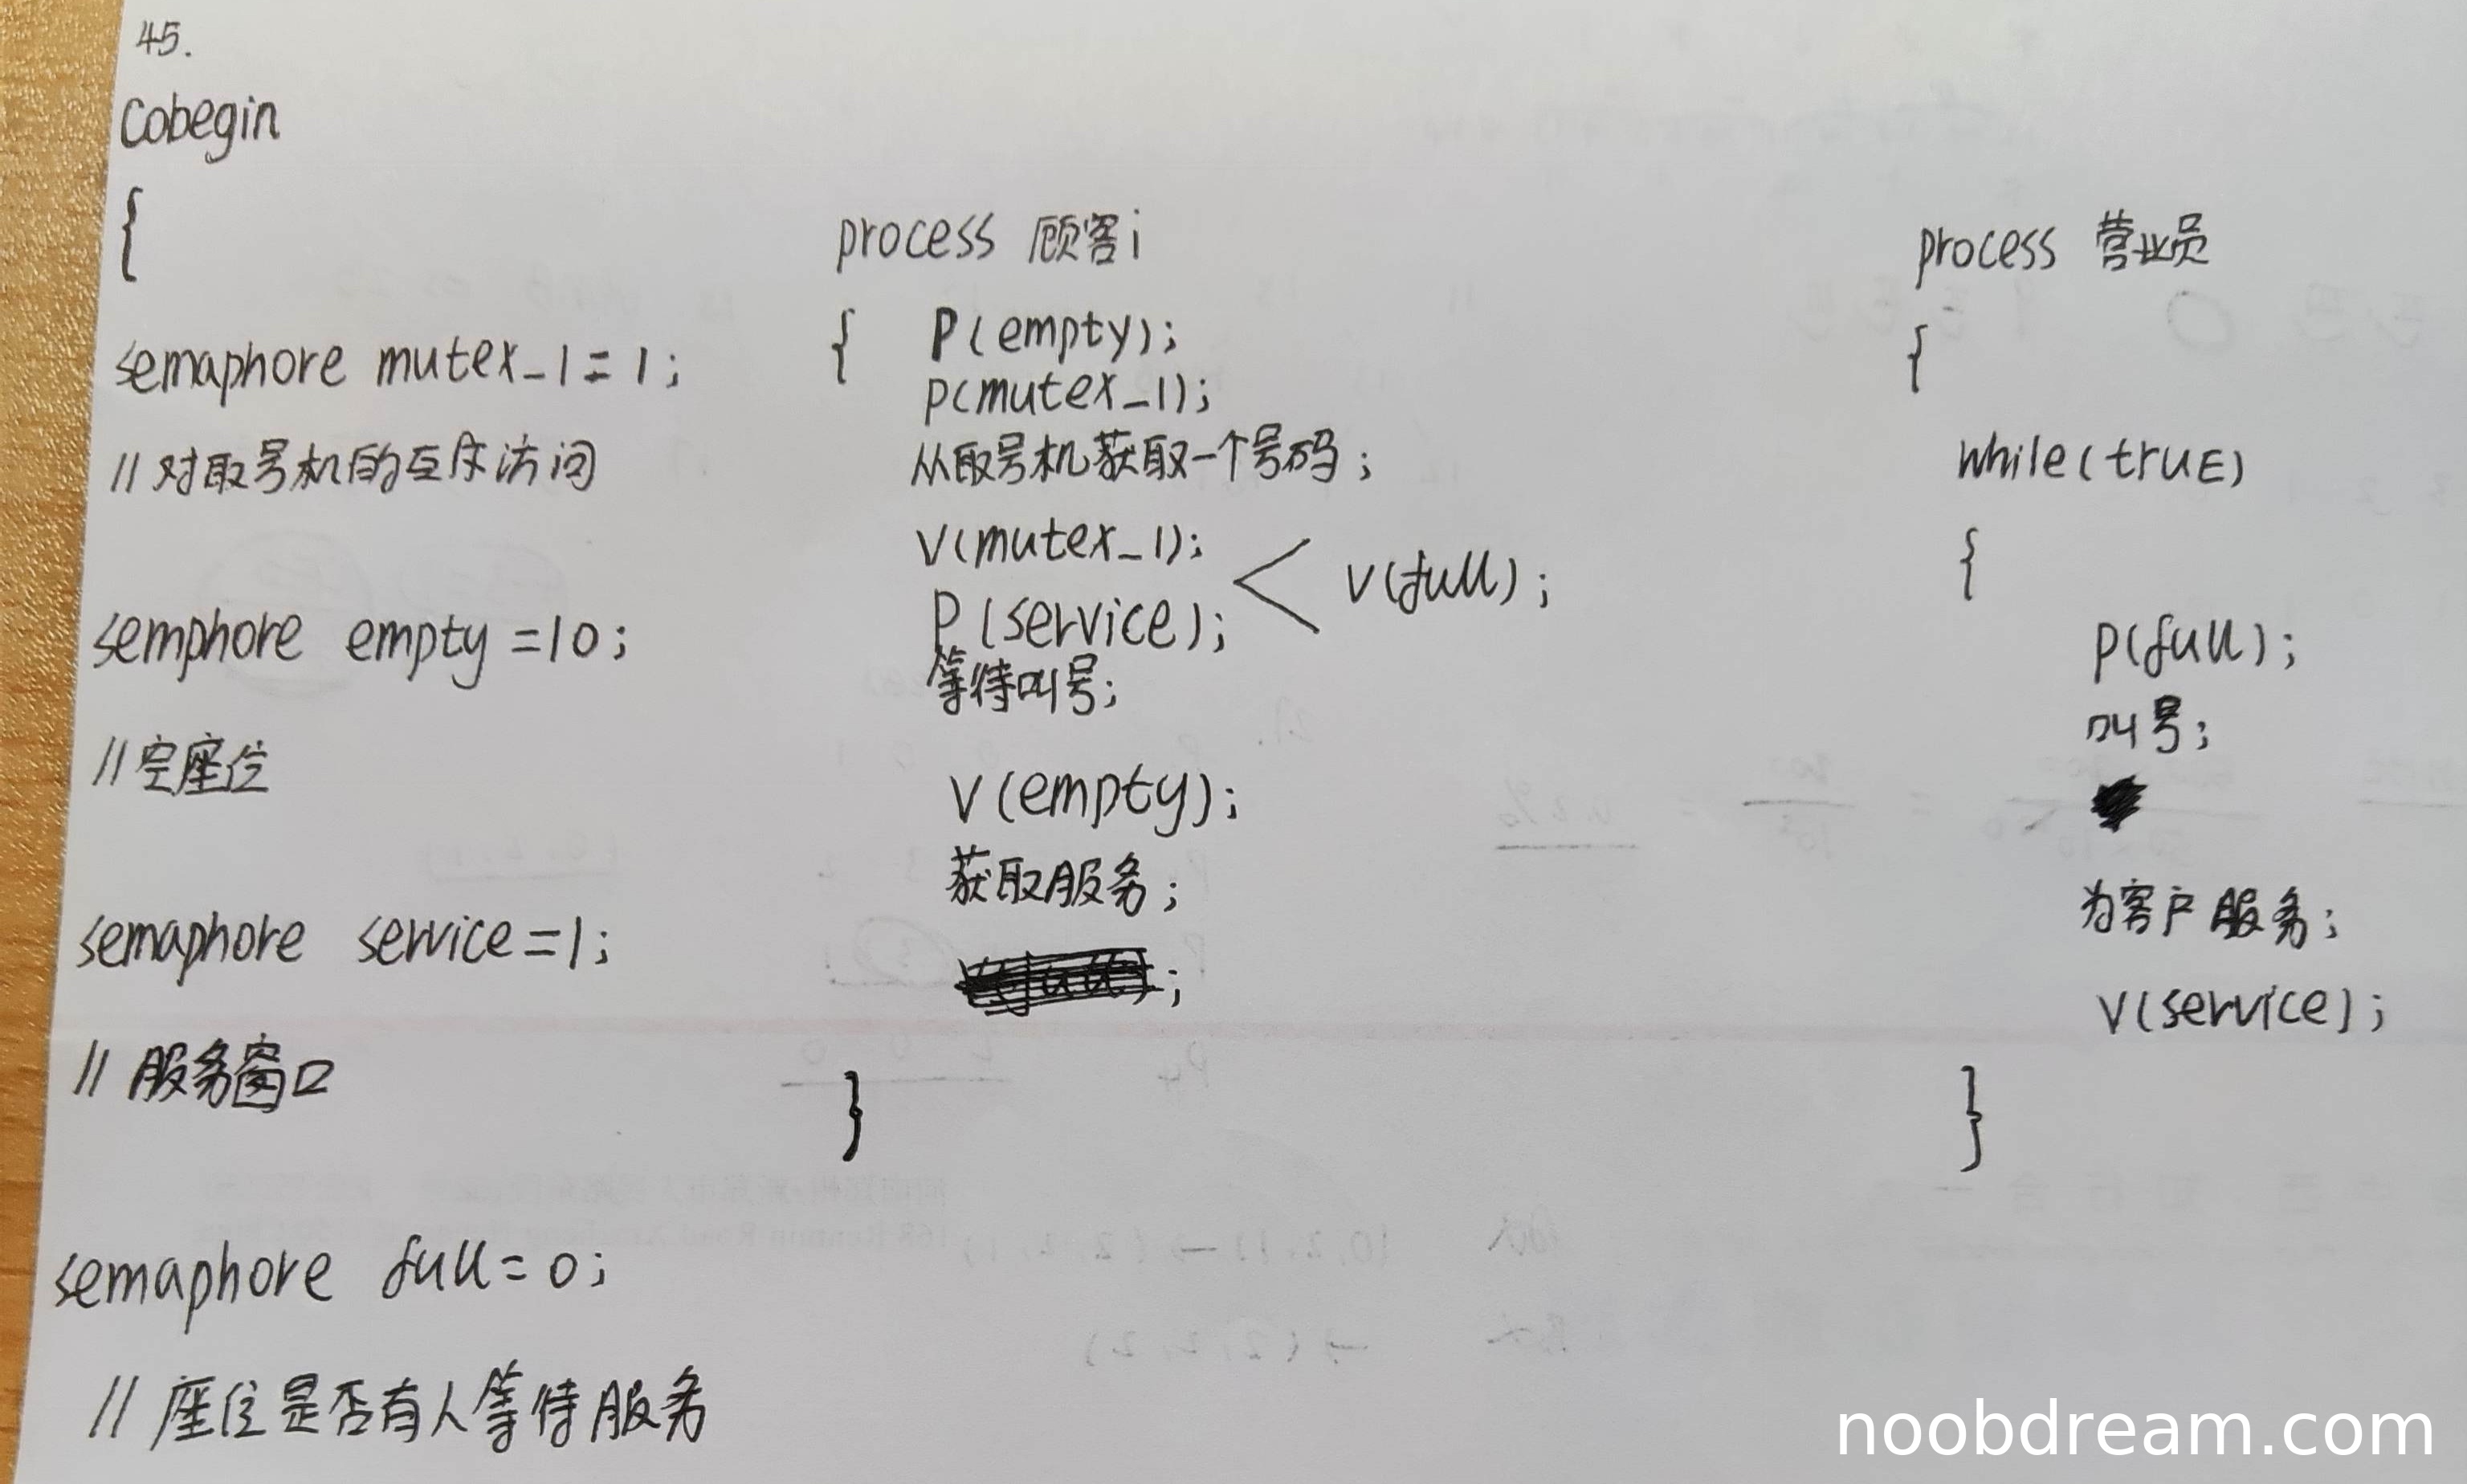 45.
Cobegin
{
semaphore mutex_1 = 1;
//对取号机的互斥访问
semphore empty = 10;
//空座位
semaphore service = 1;
//服务窗口
semaphore full = 0;
//座位是否有人等待服务
process 顾客i
{ P(empty);
p(mutex_1);
从取号机获取一个号码;
V(mutex_1);
< V(full);
P(service);
等待叫号;
V(empty);
获取服务;
;
}
process 营业员
{
while(truE)
{
p(full);
叫号;
为客户服务;
V(service);
}
noobdream.com